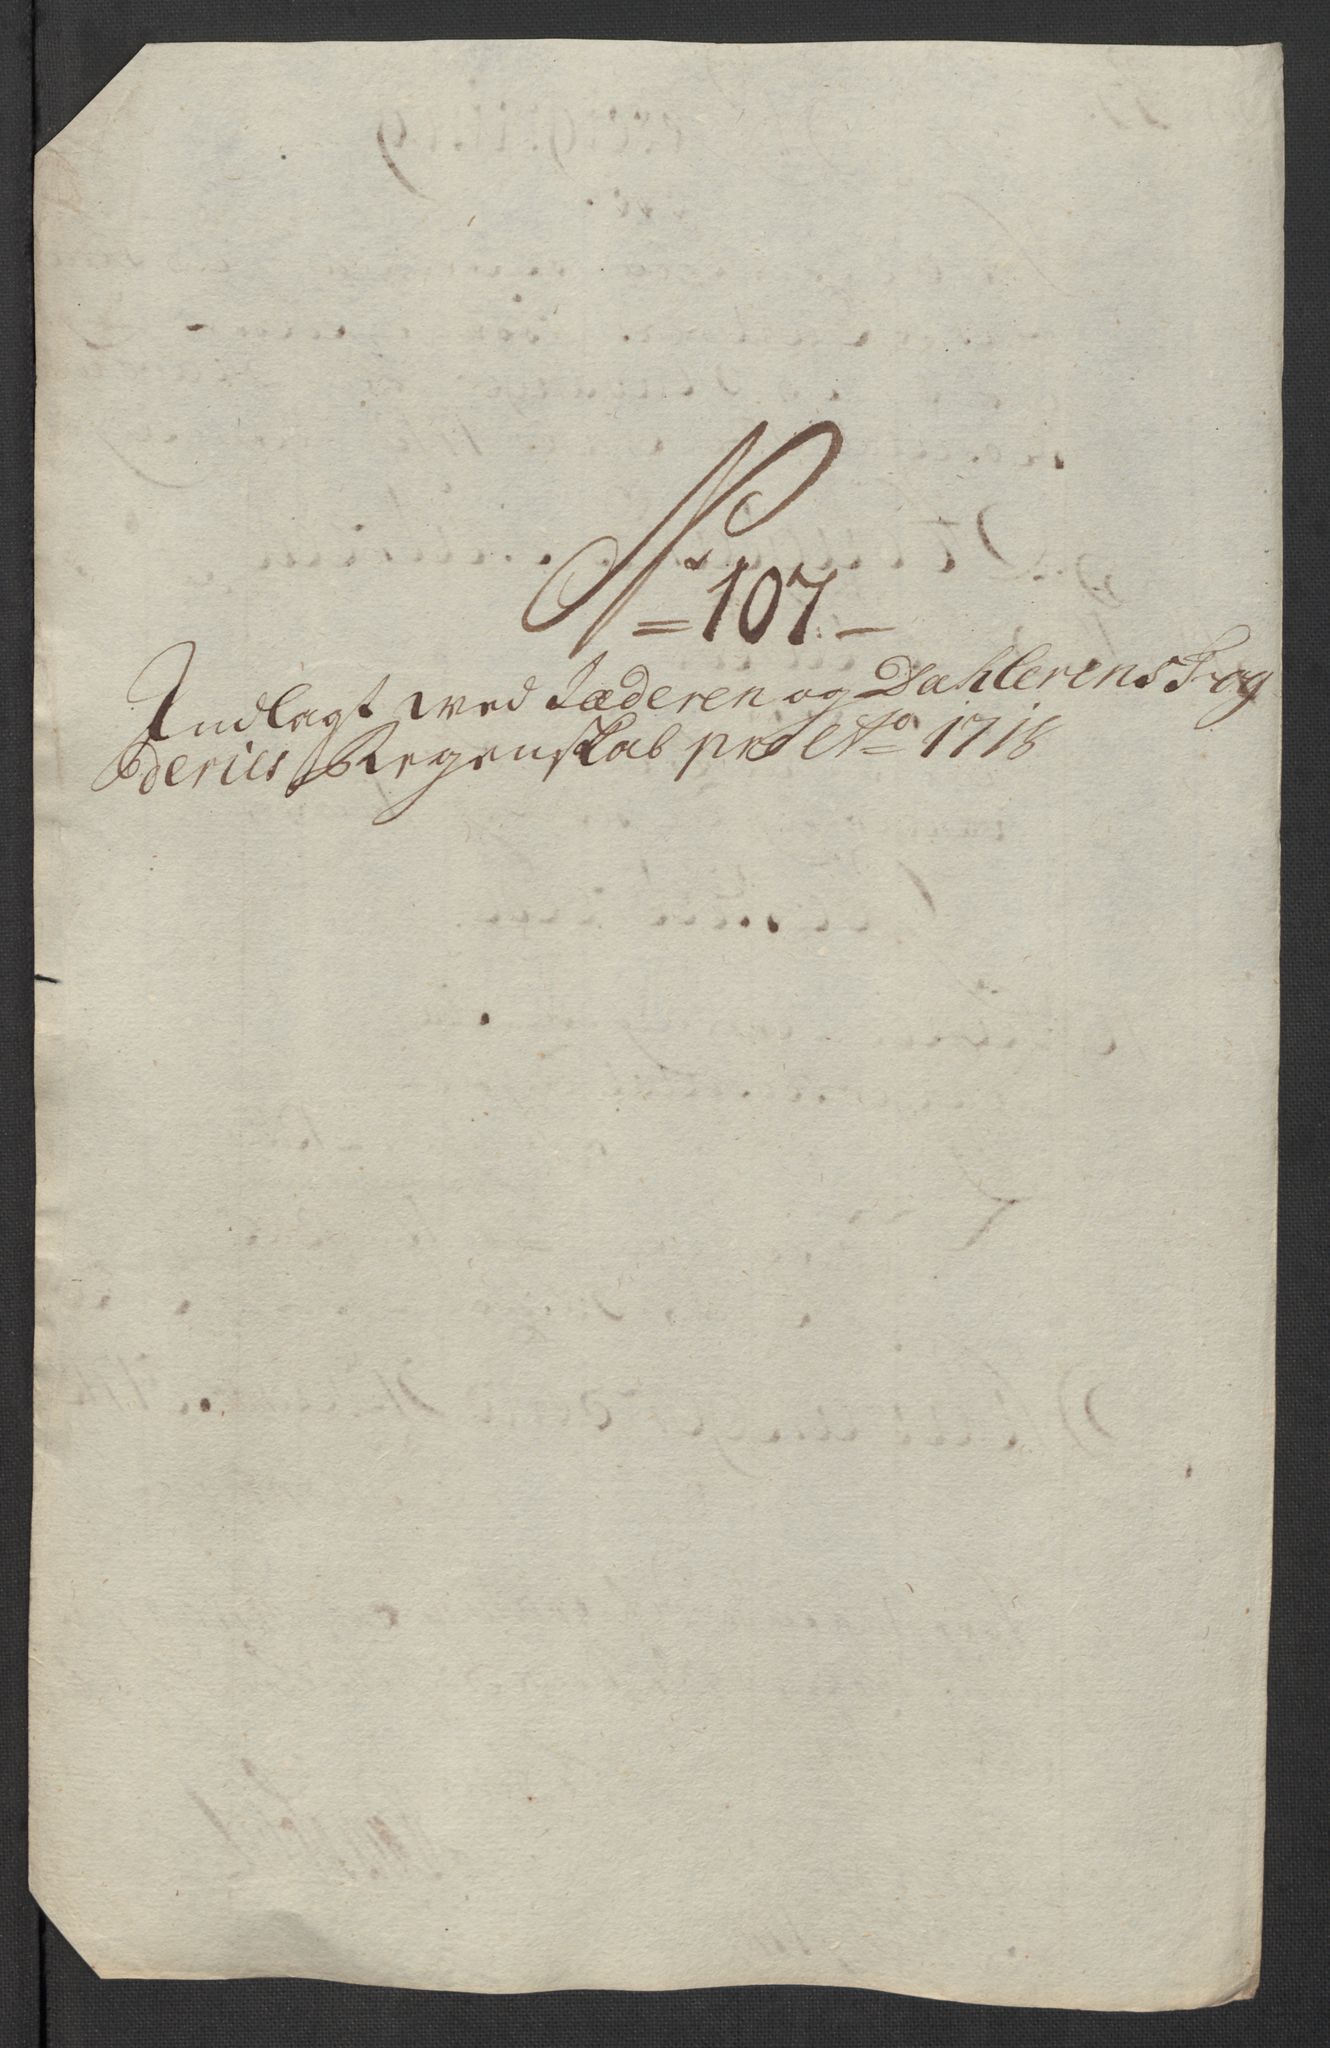 No
= 107. —
Indlagt wed Jæderen og Dahlerens Fog
deries Regenskab pro Ao 1718